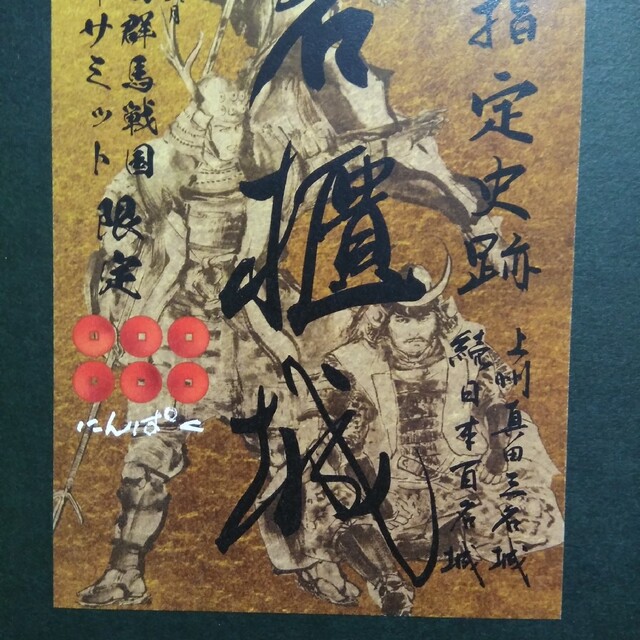 指定史跡
上州真田三名城
続日本百名城
岩櫃城
群馬戦国
サミット限定
にんぱく